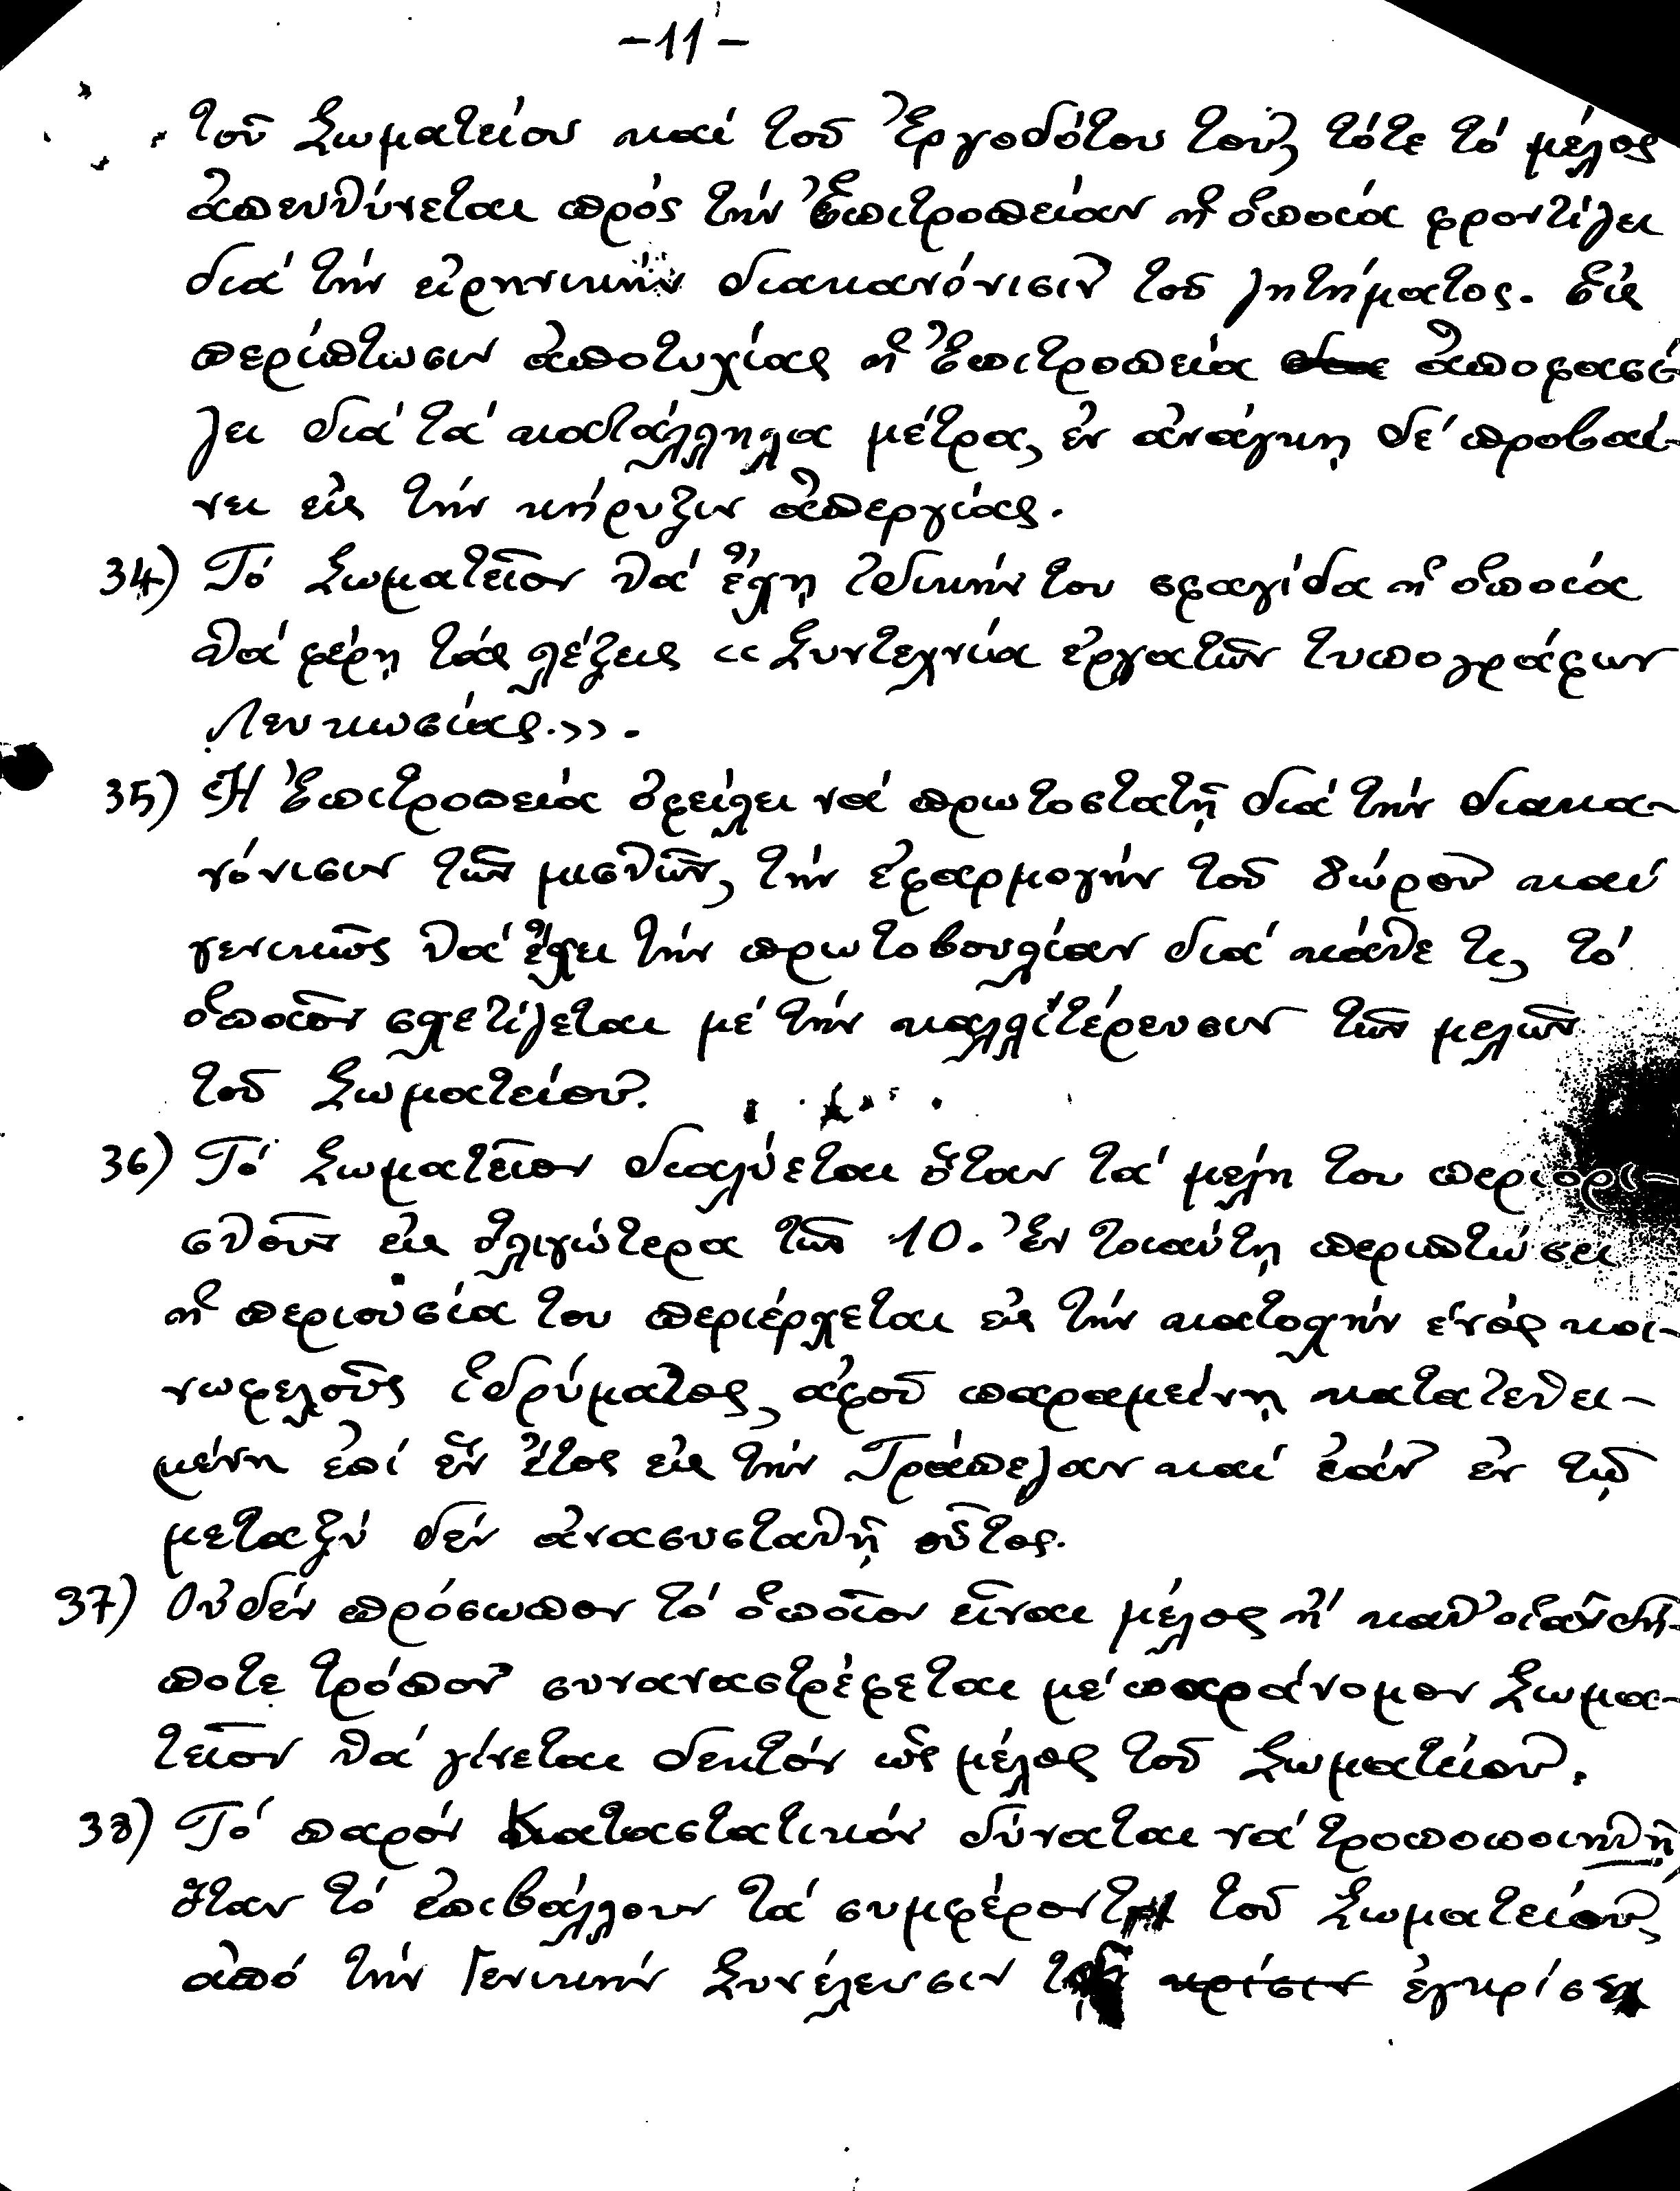 -11-
τοῦ Σωματείου καί τοῦ Ἐργοδότου του, τότε τό μέλος
ἀπευθύνεται πρός τήν Ἐπιτροπείαν ἡ ὁποία φροντίζει
διά τήν εἰρηνικήν διακανόνισιν τοῦ ζητήματος. Εἰς
περίπτωσιν ἀποτυχίας ἡ Ἐπιτροπεία ἀποφασί-
ζει διά τά κατάλληλα μέτρα, ἐν ἀνάγκῃ δέ προβαί-
νει εἰς τήν κήρυξιν ἀπεργίας.
34) Τό Σωματεῖον θά ἔχῃ ἰδικήν του σφραγίδα ἡ ὁποία
θά φέρῃ τάς λέξεις «Συντεχνία ἐργατῶν τυπογράφων
Λευκωσίας.».
35) Ἡ Ἐπιτροπεία ὀφείλει νά πρωτοστατῇ διά τήν διακα-
νόνισιν τῶν μισθῶν, τήν ἐφαρμογήν τοῦ δώρου καί
γενικῶς θά ἔχει τήν πρωτοβουλίαν διά κάθε τι, τό
ὁποῖον σχετίζεται μέ τήν καλλιτέρευσιν τῶν μελῶν
τοῦ Σωματείου.
36) Τό Σωματεῖον διαλύεται ὅταν τά μέλη του περιορι-
σθοῦν εἰς ὀλιγώτερα τῶν 10. Ἐν τοιαύτῃ περιπτώσει
ἡ περιουσία του περιέρχεται εἰς τήν κατοχήν ἑνός κοι-
νωφελοῦς ἱδρύματος, ἀφοῦ παραμείνῃ κατατεθει-
μένη ἐπί ἕν ἔτος εἰς τήν Τράπεζαν καί ἐάν ἐν τῷ
μεταξύ δέν ἀνασυσταθῇ οὗτος.
37) Οὐδέν πρόσωπον τό ὁποῖον εἶναι μέλος ἤ καθ' οἱανδή-
ποτε τρόπον συναναστρέφεται μέ παράνομον Σωμα-
τεῖον θά γίνεται δεκτόν ὡς μέλος τοῦ Σωματείου.
38) Τό παρόν Καταστατικόν δύναται νά τροποποιηθῇ
ὅταν τό ἐπιβάλλουν τά συμφέροντα τοῦ Σωματείου,
ἀπό τήν Γενικήν Συνέλευσιν τῇ κρίσιν ἐγκρίσει